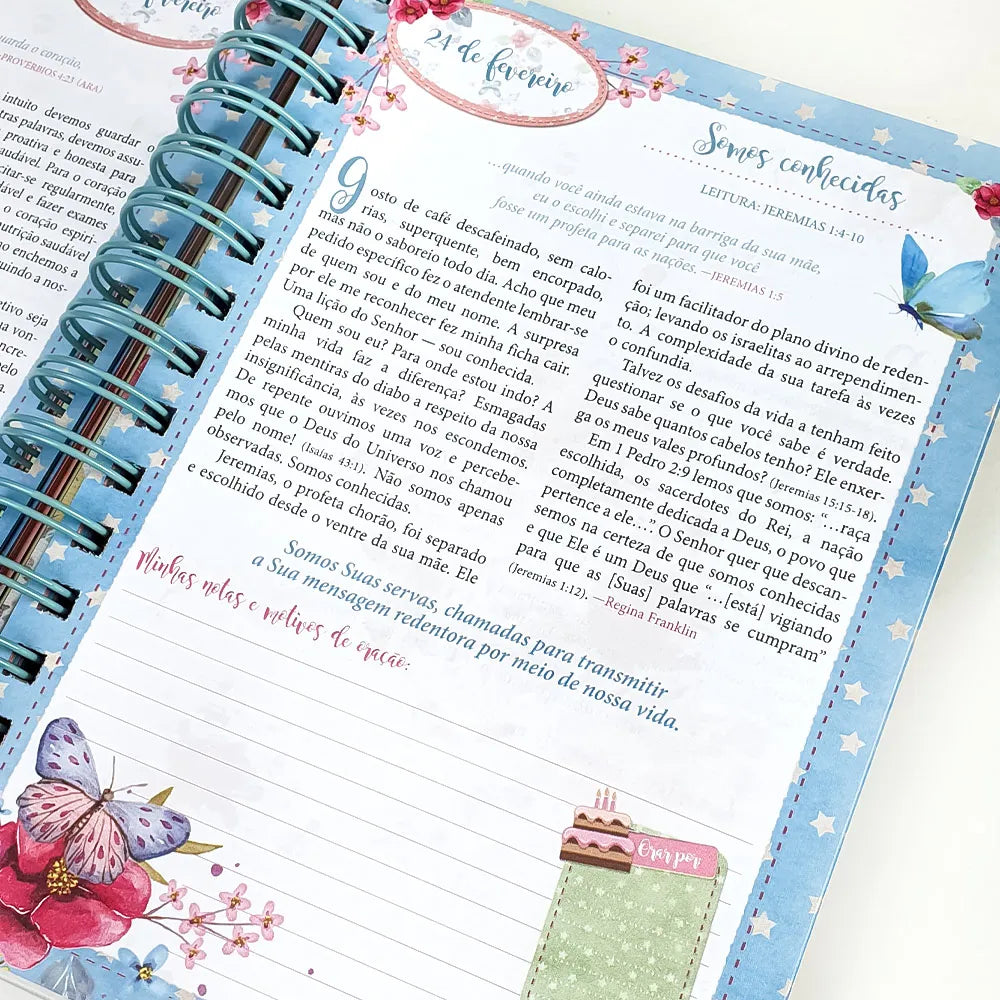 uarda o coração,
PROVÉRBIOS 4:23 (ARA)
intuito devemos guardar o
tras palavras, devemos assu-
proativa e honesta para
audável. Para o coração
citar-se regularmente,
ável e fazer exames
o coração espiri-
nutrição saudável
o enchemos a
guindo a nos-
etivo seja
ua von-
ncre-
pelo
24 de fevereiro
Somos conhecidas
LEITURA: JEREMIAS 1:4-10
...quando você ainda estava na barriga da sua mãe,
eu o escolhi e separei para que você
fosse um profeta para as nações. —JEREMIAS 1:5
Gosto de café descafeinado, sem calo-
rias, superquente, bem encorpado,
mas não o saboreio todo dia. Acho que meu
pedido específico fez o atendente lembrar-se
de quem sou e do meu nome. A surpresa
por ele me reconhecer fez minha ficha cair.
Uma lição do Senhor — sou conhecida.
Quem sou eu? Para onde estou indo? A
minha vida faz a diferença? Esmagadas
pelas mentiras do diabo a respeito da nossa
insignificância, às vezes nos escondemos.
De repente ouvimos uma voz e percebe-
mos que o Deus do Universo nos chamou
pelo nome! (Isaías 43:1). Não somos apenas
observadas. Somos conhecidas.
Jeremias, o profeta chorão, foi separado
e escolhido desde o ventre da sua mãe. Ele
foi um facilitador do plano divino de reden-
ção; levando os israelitas ao arrependimen-
to. A complexidade da sua tarefa às vezes
o confundia.
Talvez os desafios da vida a tenham feito
questionar se o que você sabe é verdade.
Deus sabe quantos cabelos tenho? Ele enxer-
ga os meus vales profundos? (Jeremias 15:15-18).
Em 1 Pedro 2:9 lemos que somos: “…raça
escolhida, os sacerdotes do Rei, a nação
completamente dedicada a Deus, o povo que
pertence a ele…” O Senhor quer que descan-
semos na certeza de que somos conhecidas
e que Ele é um Deus que “…[está] vigiando
para que as [Suas] palavras se cumpram”
(Jeremias 1:12). —Regina Franklin
Somos Suas servas, chamadas para transmitir
a Sua mensagem redentora por meio de nossa vida.
Minhas notas e motivos de oração:
Orar por